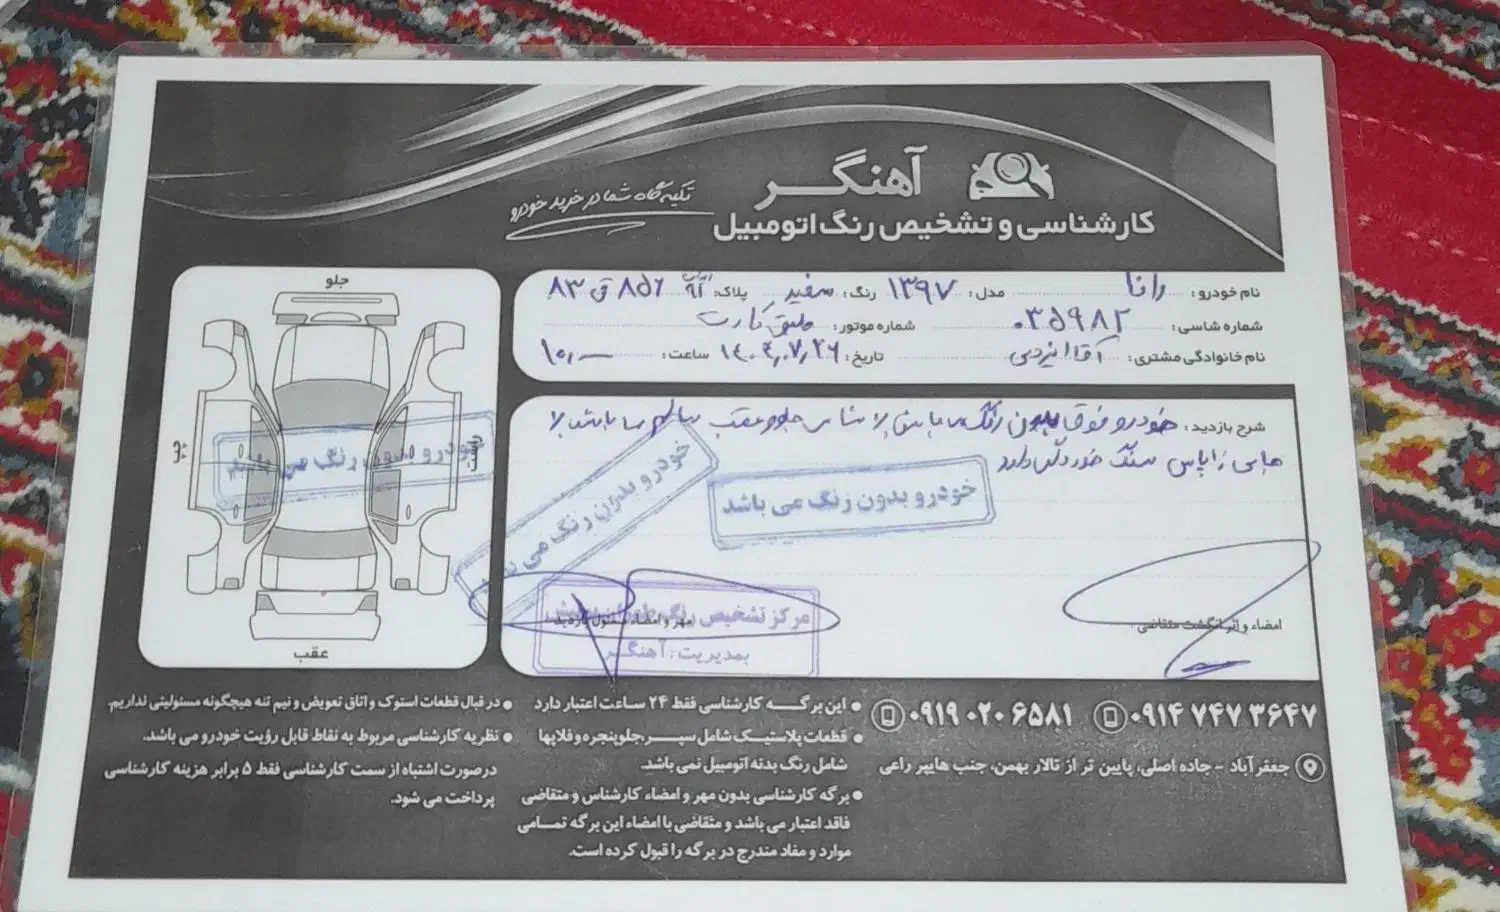 آهنگر
کارشناسی و تشخیص رنگ اتومبیل
تکیه گاه شما در خرید خودرو
نام خودرو : وانا مدل : ۱۳۹۷ رنگ : سفید پلاک: ۸۵۶ ق ۸۳
شماره شاسی : ۰۳۵۹۸۲ شماره موتور : طبق کارت
نام خانوادگی مشتری : آقا ایزدی تاریخ : ۱۴۰۳,۰۷,۲۶ ساعت : ۱۰,
شرح بازدید : خودرو فوق بدون رنگ شاسی جلو و عقب سالم
های زاپاس سنگ خوردگی دارد
خودرو بدون رنگ می باشد
خودرو بدون رنگ می باشد
خودرو بدون رنگ می باشد
جلو
چپ
راست
عقب
امضاء و اثر انگشت متقاضی :
مهر و امضاء مسئول بازدید :
مرکز تشخیص رنگ
بمدیریت : آهنگر
۰۹۱۴ ۷۴۷ ۳۶۴۷
۰۹۱۹ ۰۲۰ ۶۵۸۱
جعفرآباد - جاده اصلی، پایین تر از تالار بهمن، جنب هایپر راعی
● این برگه کارشناسی فقط ۲۴ ساعت اعتبار دارد
● قطعات پلاستیک شامل سپر، جلوپنجره و فلاپها
شامل رنگ بدنه اتومبیل نمی باشد.
● برگه کارشناسی بدون مهر و امضاء کارشناس و متقاضی
فاقد اعتبار می باشد و متقاضی با امضاء این برگه تمامی
موارد و مفاد مندرج در برگه را قبول کرده است.
● در قبال قطعات استوک و اتاق تعویض و نیم تنه هیچگونه مسئولیتی نداریم.
● نظریه کارشناسی مربوط به نقاط قابل رؤیت خودرو می باشد.
درصورت اشتباه از سمت کارشناسی فقط ۵ برابر هزینه کارشناسی
پرداخت می شود.